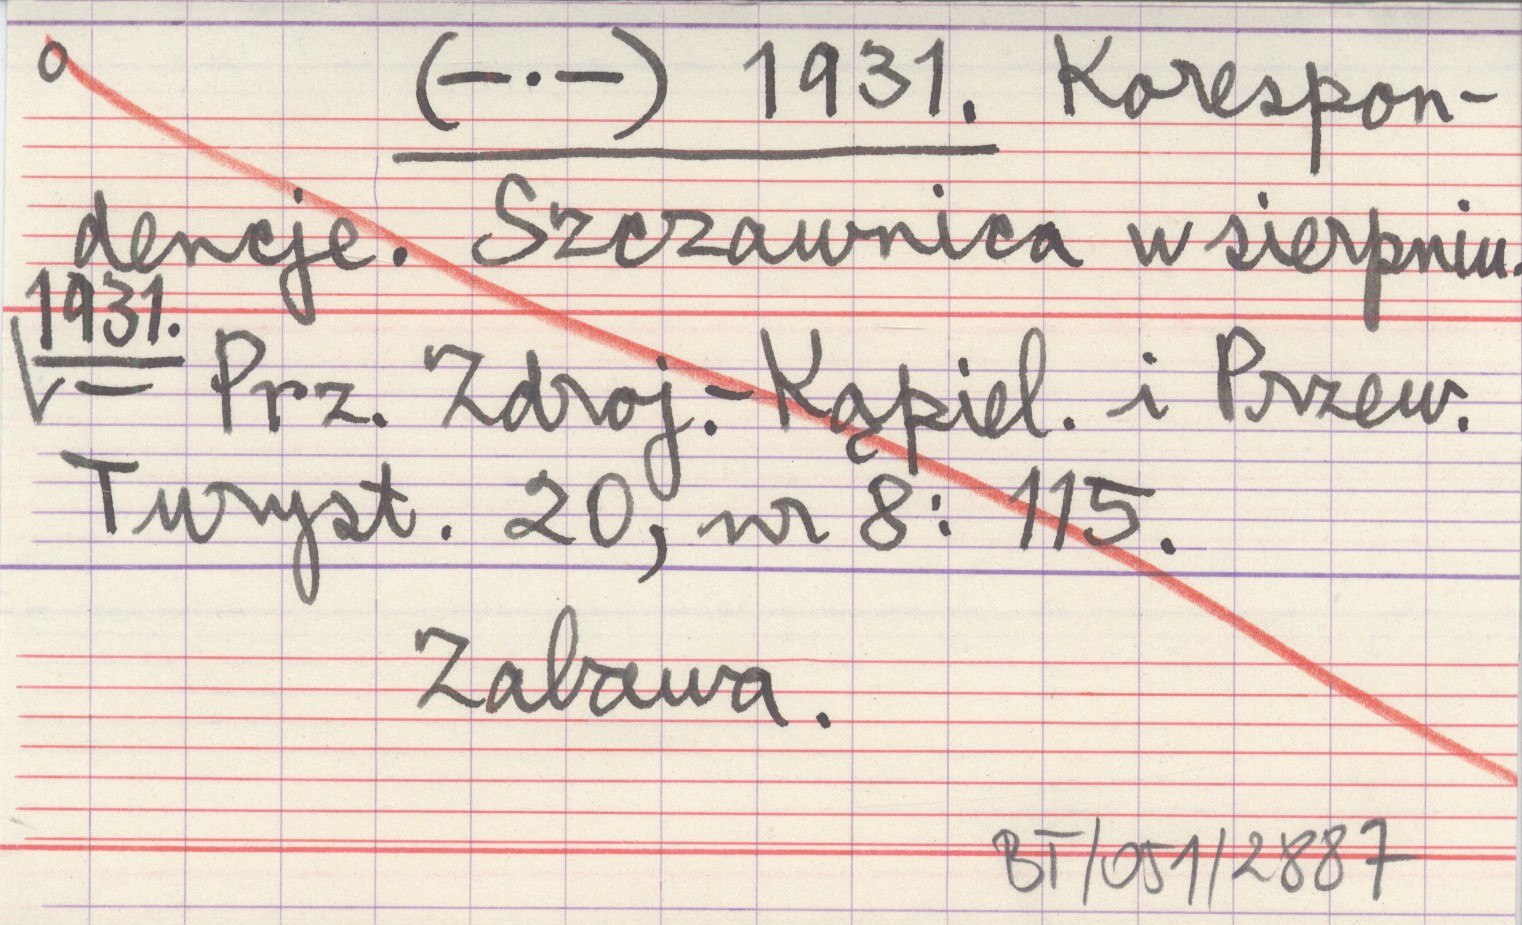 o (—·—) 1931. Korespon-
dencje. Szczawnica w sierpniu.
1931. — Prz. Zdroj.-Kąpiel. i Przew.
Turyst. 20, nr 8: 115.
Zabawa.
BT/051/2887